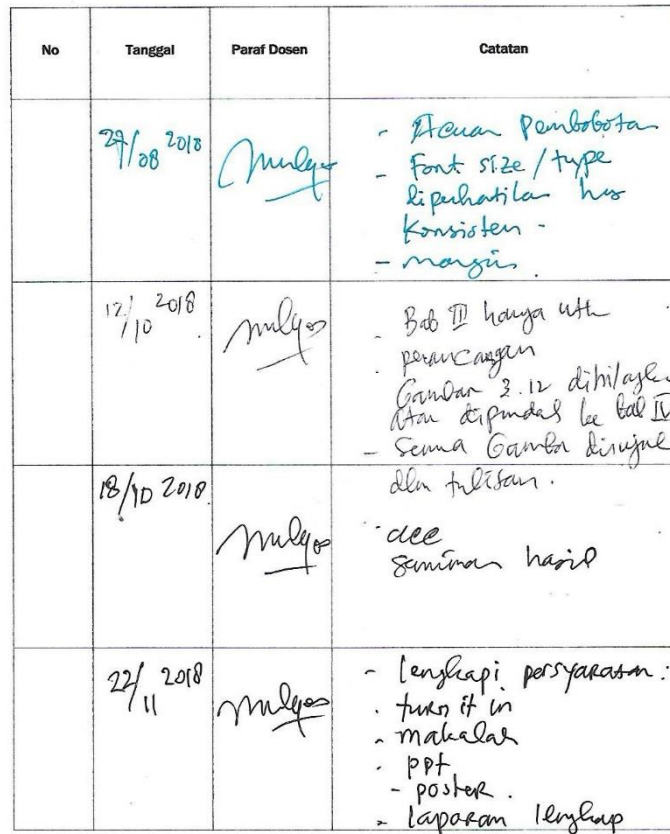 No Tanggal Paraf Dosen Catatan
27/08 2018
- Acuan Pembobotan
- Font size/type
diperhatikan hrs
Konsisten -
- margin.
12/10 2018
- Bab III hanya utk
perancangan
Gambar 3.12 dihilangkan
atau dipindah ke bab IV
- Semua Gambar dirujuk
dlm tulisan.
18/10 2018
acc
seminar hasil
22/11 2018
- lengkapi persyaratan:
- turn it in
- makalah
- ppt
- poster.
- laporan lengkap